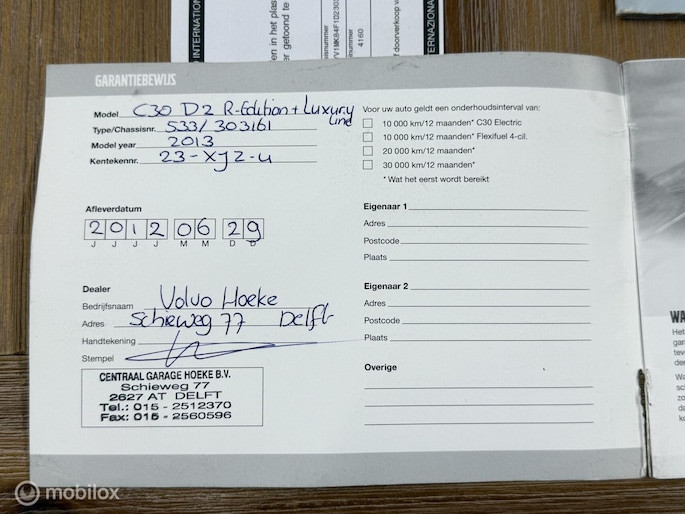 INTERNATION
en in het plas
er getoond te
Snummer
V1MK84F1D230
nummer
4160
f doorverkoop v
INTERNATIONA
GARANTIEBEWIJS
Model C30 D2 R-Edition + Luxury Line
Type/Chassisnr. 533/303161
Model year 2013
Kentekennr. 23-XJZ-4
Afleverdatum
2012 06 29
J J J J M M D D
Dealer
Bedrijfsnaam Volvo Hoeke
Adres Schieweg 77 Delft
Handtekening
Stempel
CENTRAAL GARAGE HOEKE B.V.
Schieweg 77
2627 AT DELFT
Tel.: 015 - 2512370
Fax: 015 - 2560596
Voor uw auto geldt een onderhoudsinterval van:
10 000 km/12 maanden* C30 Electric
10 000 km/12 maanden* Flexifuel 4-cil.
20 000 km/12 maanden*
30 000 km/12 maanden*
* Wat het eerst wordt bereikt
Eigenaar 1
Adres
Postcode
Plaats
Eigenaar 2
Adres
Postcode
Plaats
Overige
WA
Het
gar
teve
der
Wa
sch
zo
da
ko
mobilox